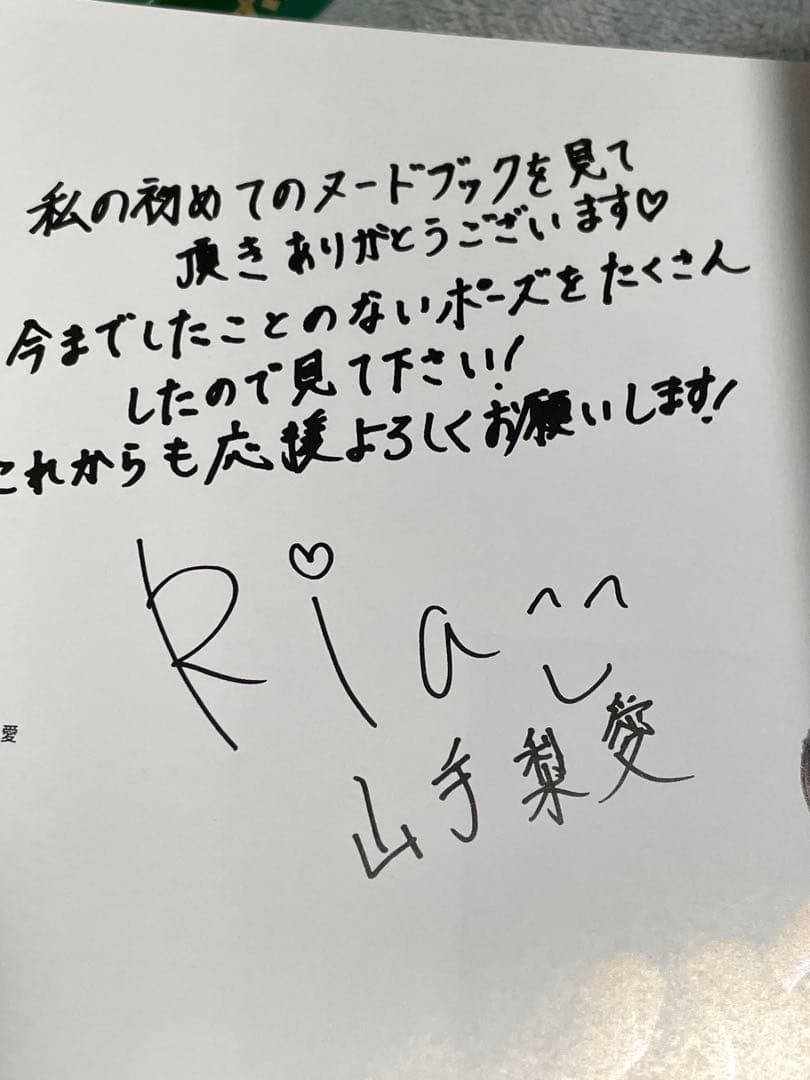 私の初めてのヌードブックを見て
頂きありがとうございます♡
今までしたことのないポーズをたくさん
したので見て下さい!
これからも応援よろしくお願いします!
Ria
山手梨愛
愛